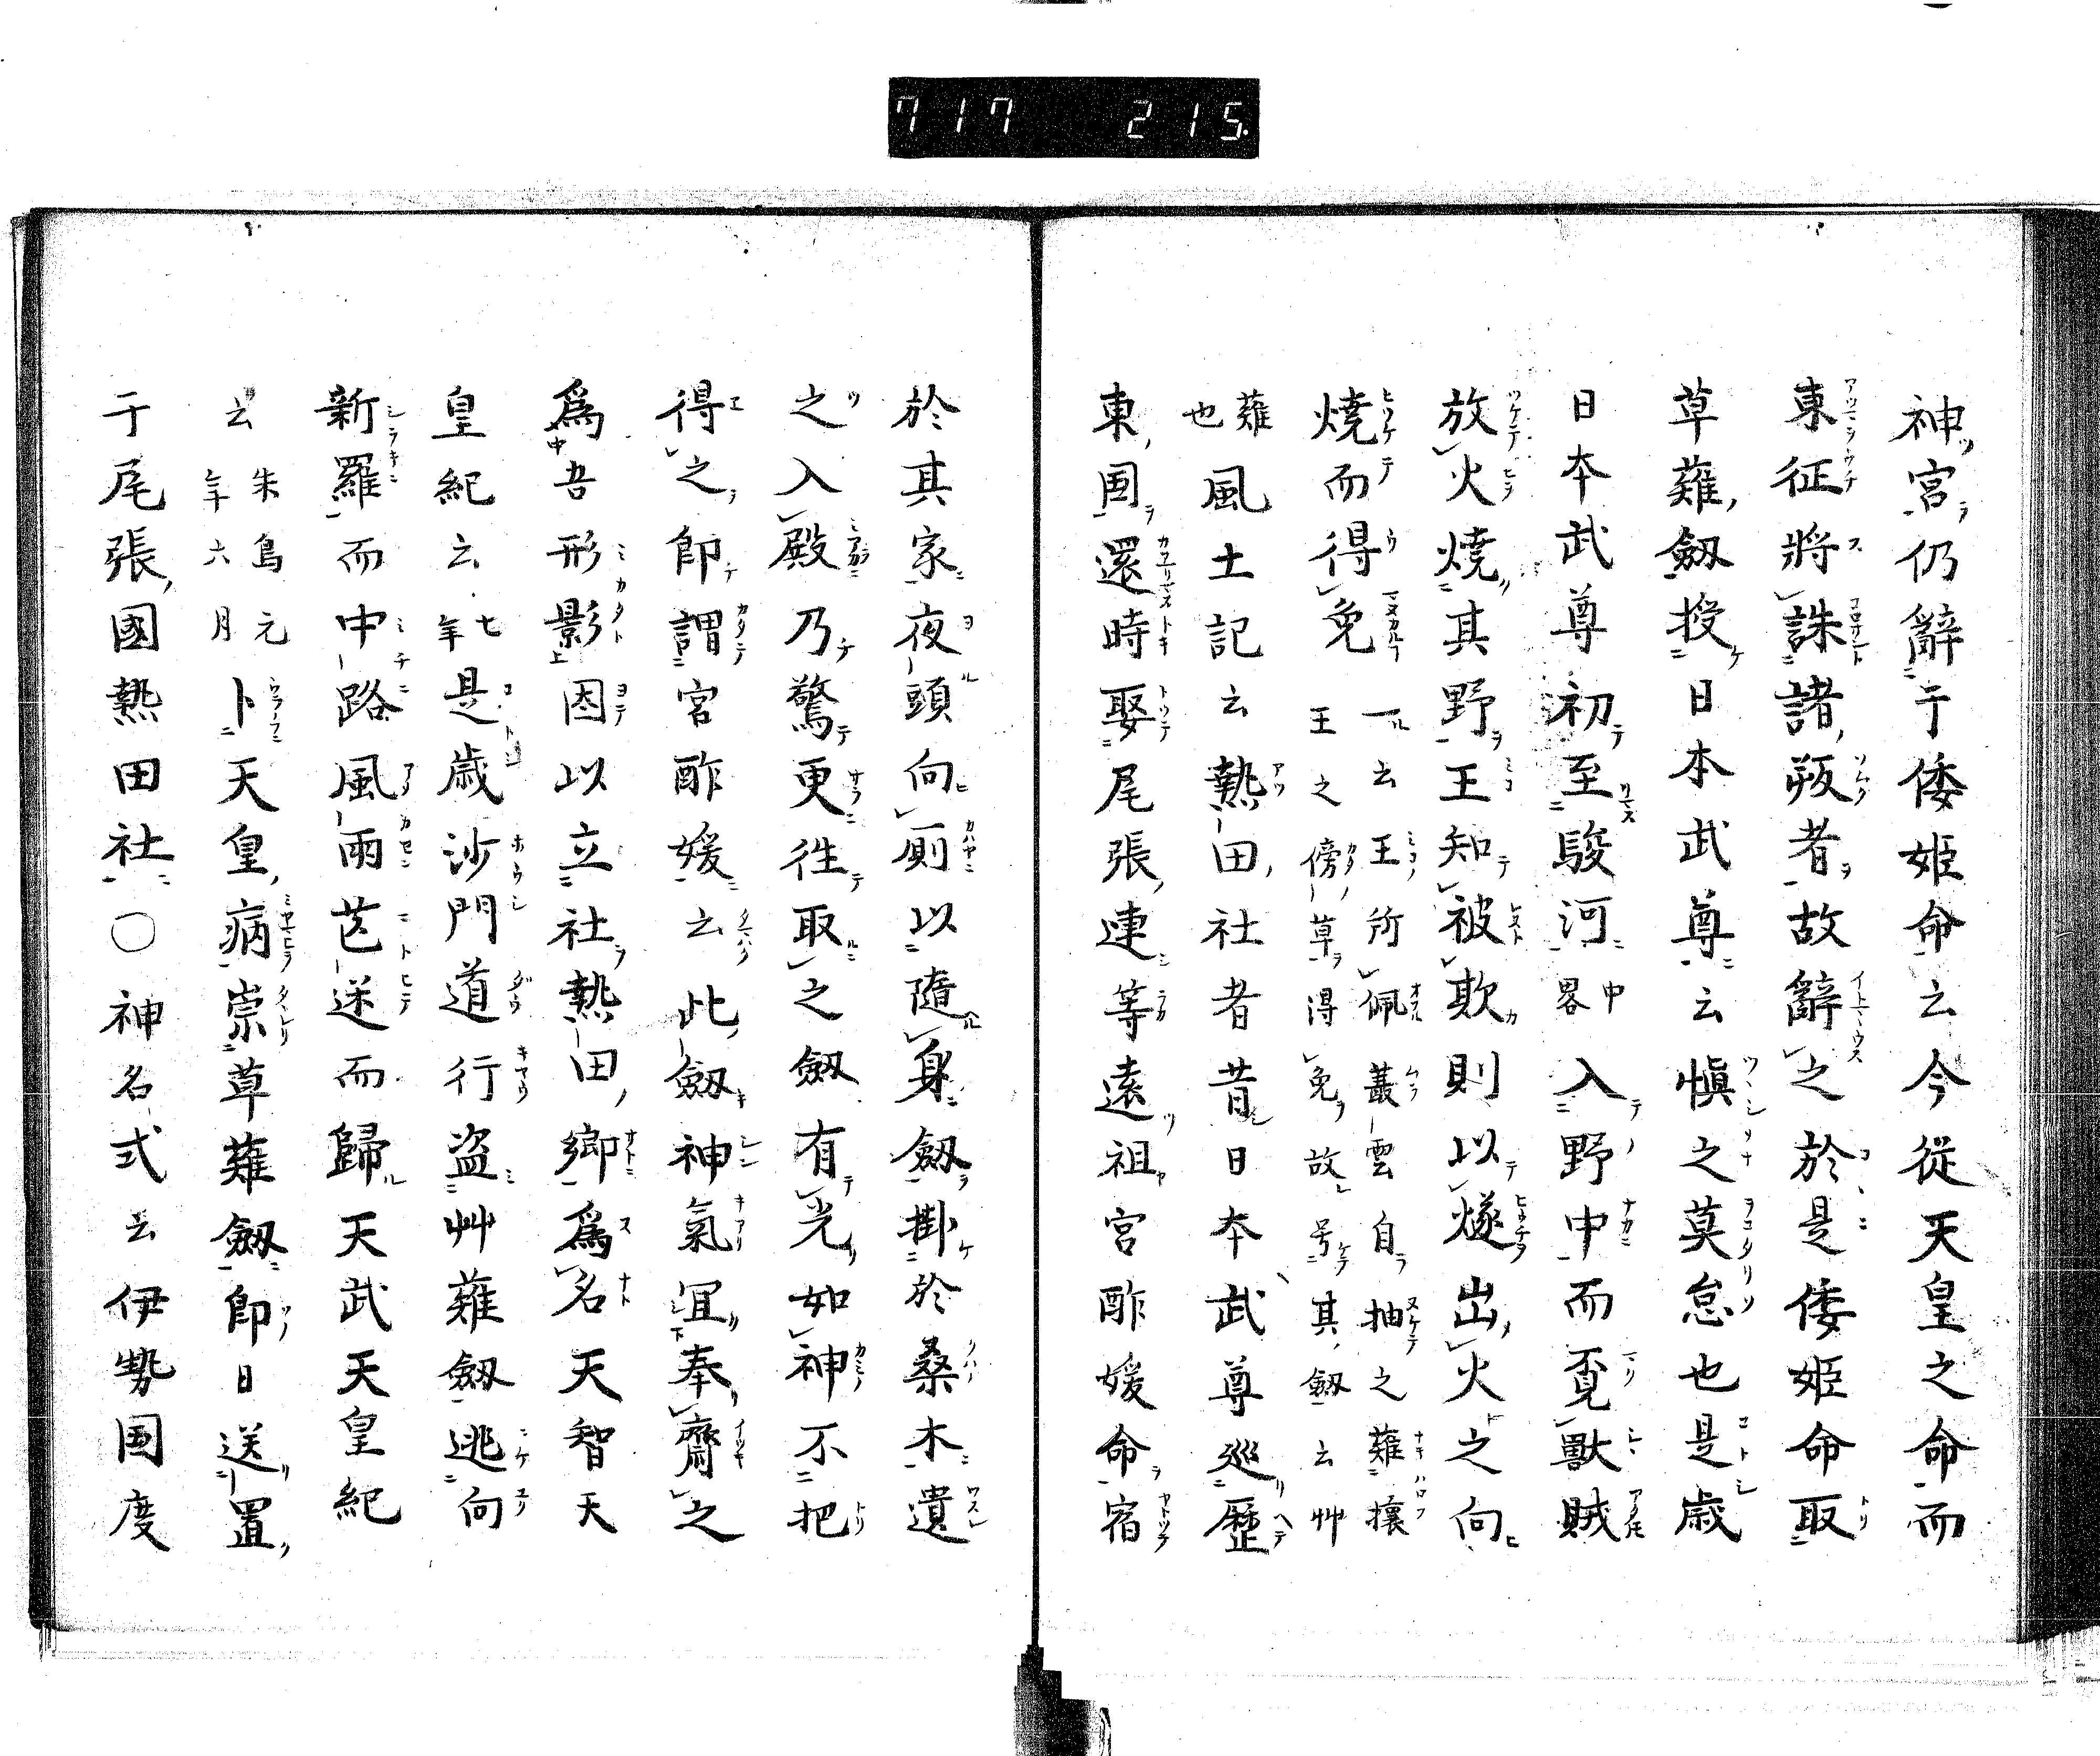 717 215
神宮仍辭于倭姬命云今從天皇之命而
東征將誅諸叛者故辭之於是倭姬命取
草薙劔授日本武尊云慎之莫怠也是歳
日本武尊初至駿河中畧入野中而覓獸賊
放火燒其野王知被欺則以燧出火之向
燒而得免一云王所佩叢雲自抽之薙攘王之傍草得免故号其劔云艸
薙也風土記云熱田社者昔日本武尊巡歷
東国還時娶尾張連等遠祖宮酢媛命宿
於其家夜頭向厠以隨身劔掛於桑木遺
之入殿乃驚更徃取之劔有光如神不把
得之即謂宮酢媛云此劔神氣冝奉齋之
爲吾形影因以立社熱田鄉爲名天智天
皇紀云七年是歳沙門道行盜艸薙劔逃向
新羅而中路風雨芒迷而歸天武天皇紀
云朱鳥元年六月卜天皇病祟草薙劔即日送置
于尾張國熱田社○神名式云伊勢国度